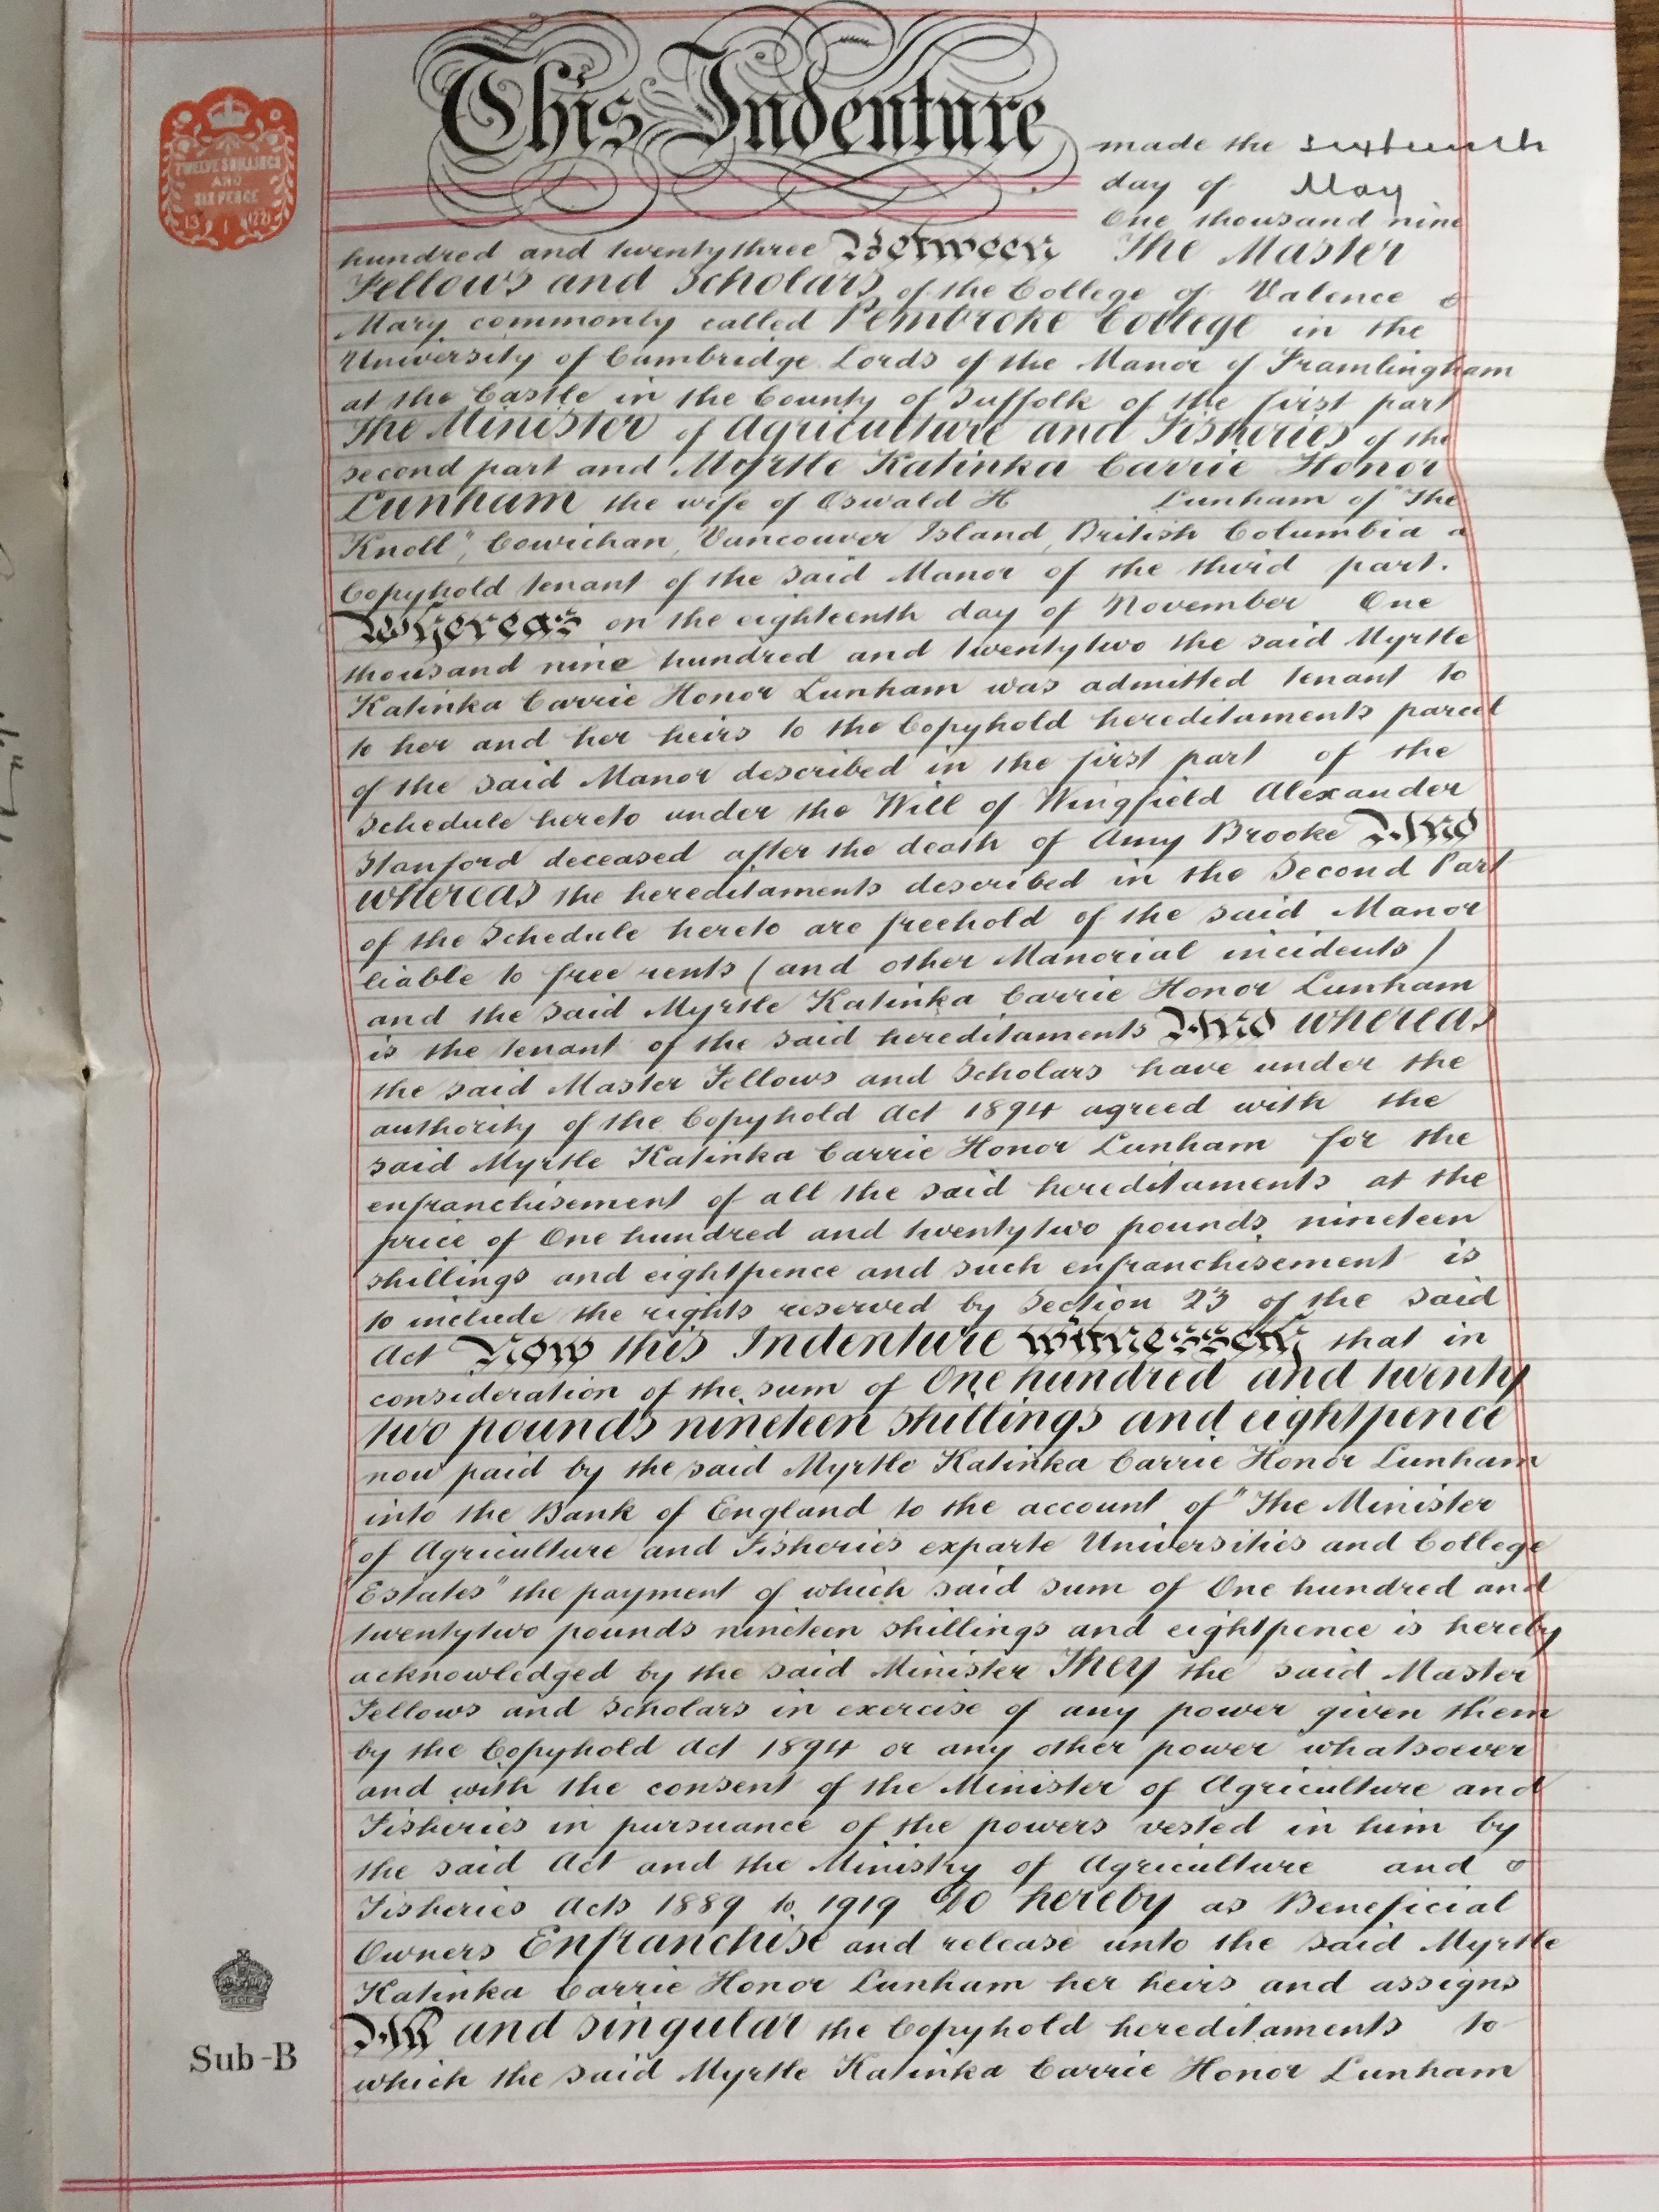 This Indenture made the sixteenth
day of May
One thousand nine
hundred and twentythree Between The Master
Fellows and Scholars of the College of Valence
Mary commonly called Pembroke College in the
University of Cambridge Lords of the Manor of Framlingham
at the Castle in the County of Suffolk of the first part
The Minister of Agriculture and Fisheries of the
second part and Myrtle Katinka Carrie Honor
Lunham the wife of Oswald H Lunham of "The
Knoll", Cowichan, Vancouver Island, British Columbia a
Copyhold tenant of the said Manor of the third part.
Whereas on the eighteenth day of November One
thousand nine hundred and twentytwo the said Myrtle
Katinka Carrie Honor Lunham was admitted tenant to
to her and her heirs to the Copyhold hereditaments parcel
of the said Manor described in the first part of the
Schedule hereto under the Will of Wingfield Alexander
Stanford deceased after the death of Amy Brooke And
whereas the hereditaments described in the Second Part
of the Schedule hereto are freehold of the said Manor
liable to free rents (and other Manorial incidents)
and the said Myrtle Katinka Carrie Honor Lunham
is the tenant of the said hereditaments And whereas
the said Master Fellows and Scholars have under the
authority of the Copyhold Act 1894 agreed with the
said Myrtle Katinka Carrie Honor Lunham for the
enfranchisement of all the said hereditaments at the
price of One hundred and twentytwo pounds nineteen
shillings and eightpence and such enfranchisement is
to include the rights reserved by Section 23 of the said
Act Now this Indenture witnesseth that in
consideration of the sum of One hundred and twenty
two pounds nineteen shillings and eightpence
now paid by the said Myrtle Katinka Carrie Honor Lunham
into the Bank of England to the account of "The Minister
"of Agriculture and Fisheries exparte Universities and College
"Estates" the payment of which said sum of One hundred and
twentytwo pounds nineteen shillings and eightpence is hereby
acknowledged by the said Minister They the said Master
Fellows and Scholars in exercise of any power given them
by the Copyhold Act 1894 or any other power whatsoever
and with the consent of the Minister of Agriculture and
Fisheries in pursuance of the powers vested in him by
the said Act and the Ministry of Agriculture and
Fisheries Acts 1889 to 1919 Do hereby as Beneficial
Owners Enfranchise and release unto the said Myrtle
Katinka Carrie Honor Lunham her heirs and assigns
All and singular the Copyhold hereditaments to
which the said Myrtle Katinka Carrie Honor Lunham
TWELVE SHILLINGS
AND
SIX PENCE
13 1 22
Sub-B